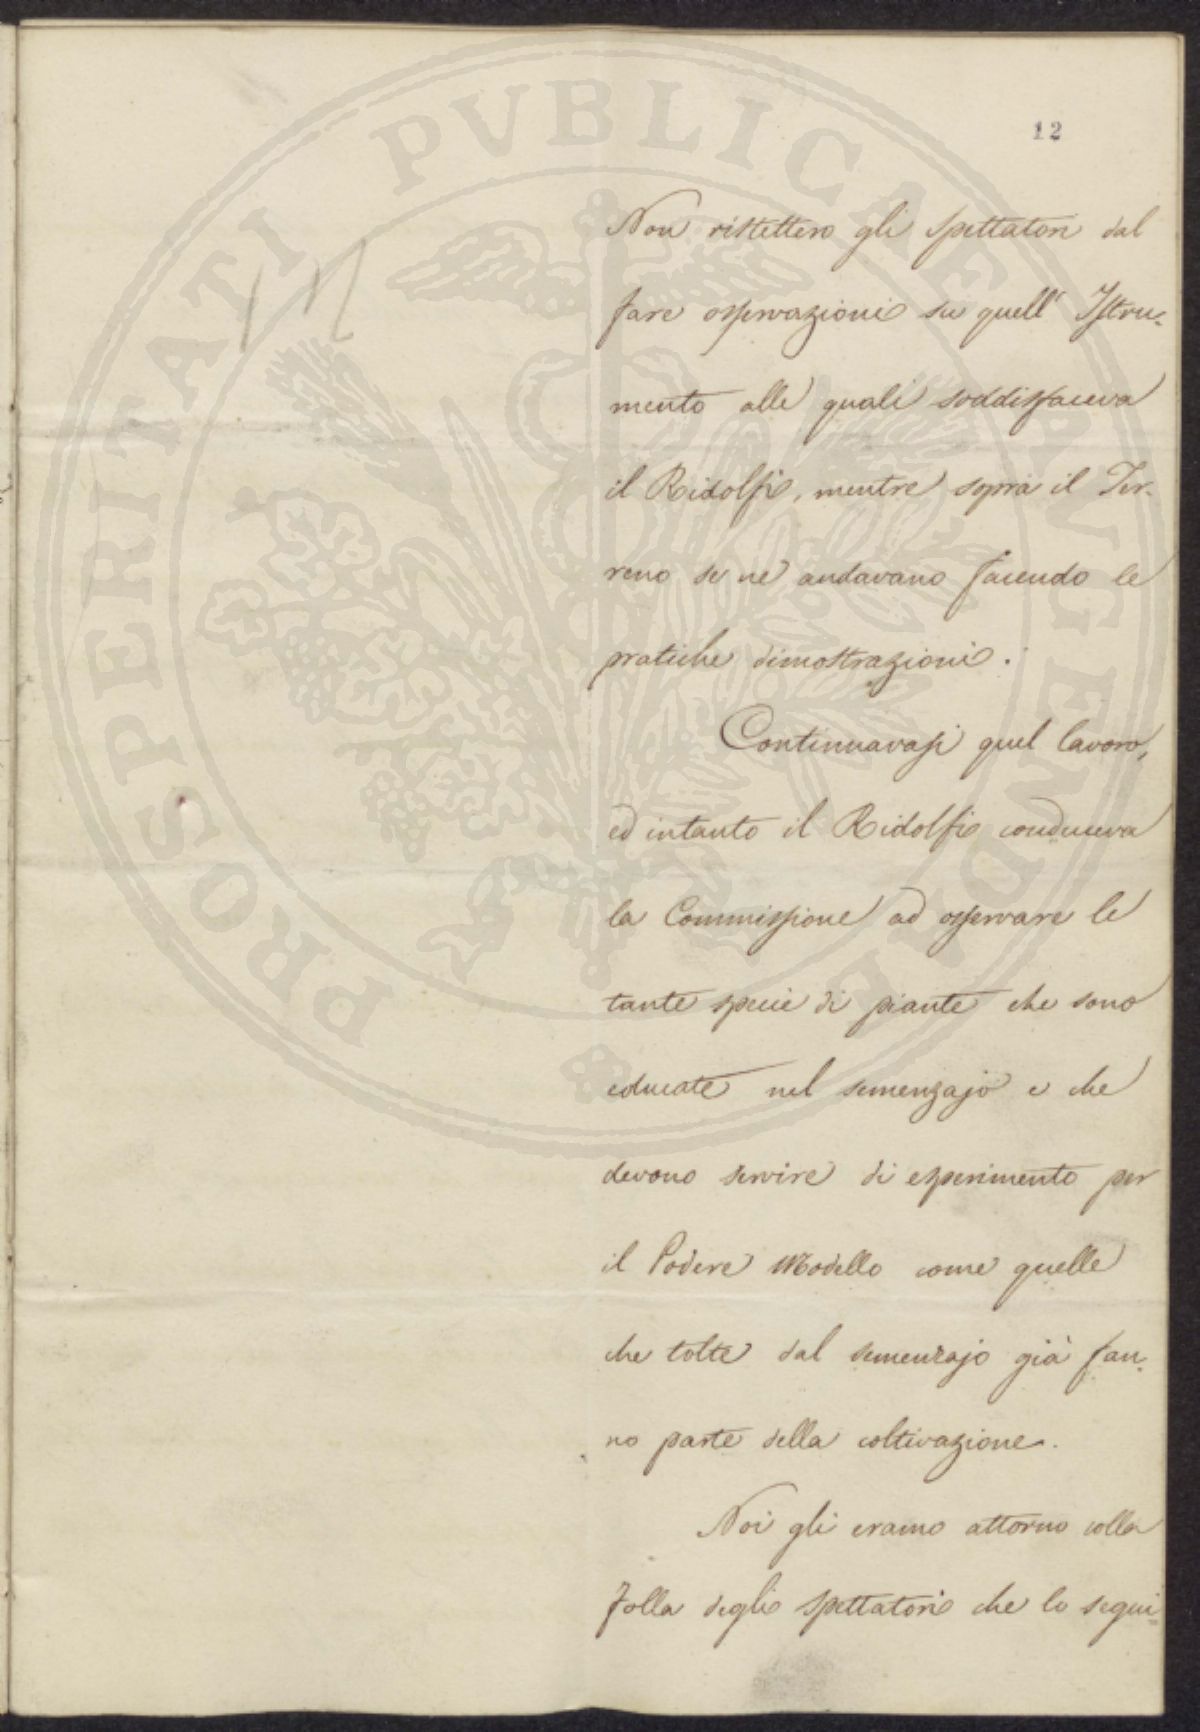 12
Non ristettero gli Spettatori dal
fare osservazioni su quell' Istru-
mento alle quali soddisfaceva
il Ridolfi, mentre sopra il Ter-
reno se ne andavano facendo le
pratiche dimostrazioni.
Continuavasi quel lavoro,
ed intanto il Ridolfi conduceva
la Commissione ad osservare le
tante specie di piante che sono
educate nel semenzajo e che
devono servire di esperimento per
il Podere Modello come quelle
che tolte dal semenzajo già fan-
no parte della coltivazione.
Noi gli eramo attorno colla
folla degli Spettatori che lo segui-
PROSPERITATI PVBLICAE AVGENDAE